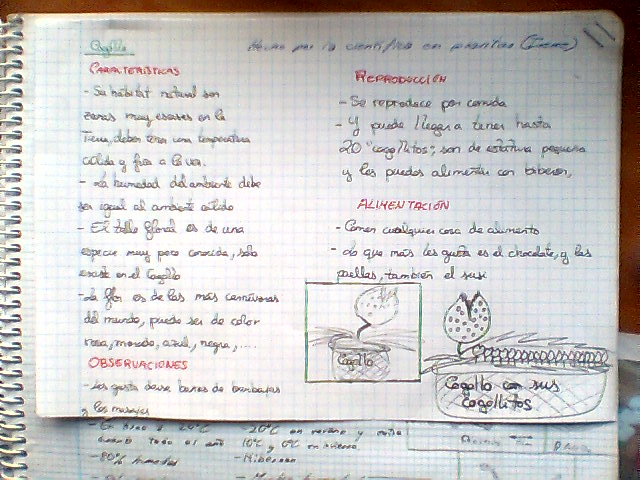 Cogollo
Hecho por la científica en plantitas (Irene)
CARACTERÍSTICAS
- Su hábitat natural son
zonas muy escasas en la
Tierra, deben tener una temperatura
cálida y fría a la vez.
- La humedad del ambiente debe
ser igual al ambiente cálido
- El tallo floral es de una
especie muy poco conocida, solo
existe en el Cogollo
- La flor es de las más carnívoras
del mundo, puede ser de color
rosa, morado, azul, negra, ....
OBSERVACIONES
- Les gusta darse baños de burbujas
y los masajes
REPRODUCCIÓN
- Se reproduce por comida
- Y puede llegar a tener hasta
20 "cogollitos", son de estatura pequeña
y les puedes alimentar con biberón,
ALIMENTACIÓN
- Comen cualquier cosa de alimento
- Lo que más les gusta es el chocolate, y las
paellas, también el susi
Cogollo
Cogollo con sus
cogollitos
20°C
todo el año
- 80%
- 20°C en verano y
10°C y 0°C en invierno
- Hibernan